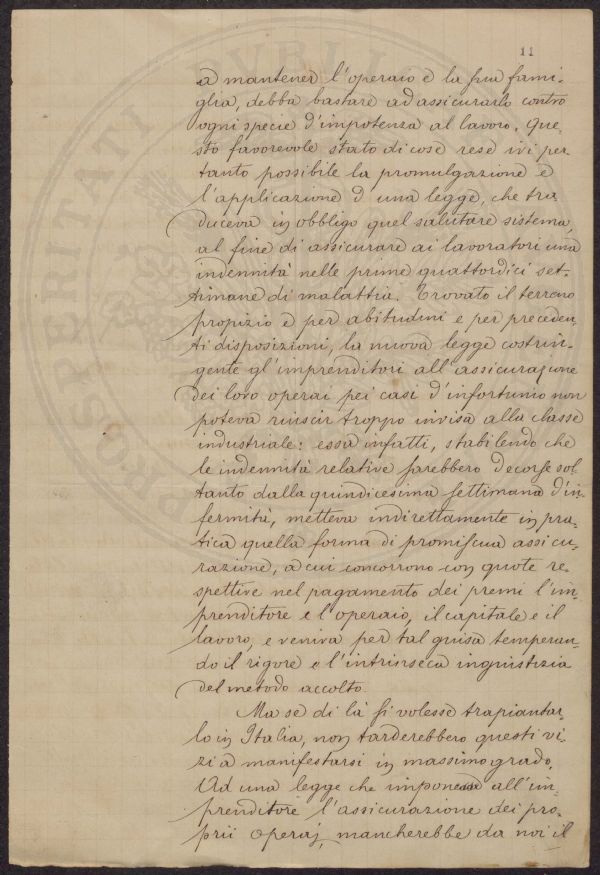 11
a mantener l'operaio e la sua fami-
glia, debba bastare ad assicurarlo contro
ogni specie d'impotenza al lavoro. Que-
sto favorevole stato di cose rese ivi per-
tanto possibile la promulgazione e
l'applicazione d'una legge, che tra-
duceva in obbligo quel salutare sistema,
al fine di assicurare ai lavoratori una
indennità nelle prime quattordici set-
timane di malattia. Trovato il terreno
propizio e per abitudini e per preceden-
ti disposizioni, la nuova legge costrin-
gente gl'imprenditori all'assicurazione
dei loro operai pei casi d'infortunio non
poteva riuscir troppo invisa alla classe
industriale: essa infatti, stabilendo che
le indennità relative sarebbero decorse sol-
tanto dalla quindicesima settimana d'in-
fermità, metteva indirettamente in pra-
tica quella forma di promiscua assicu-
razione, a cui concorrono con quote re-
spettive nel pagamento dei premi l'im-
prenditore e l'operaio, il capitale e il
lavoro, e veniva per tal guisa temperan-
do il rigore e l'intrinseca ingiustizia
del metodo accolto.
Ma se di là si volesse trapiantar-
lo in Italia, non tarderebbero questi vi-
zi a manifestarsi in massimo grado.
Ad una legge che imponesse all'im-
prenditore l'assicurazione dei pro-
prii operaj, mancherebbe da noi il
PROSPERITATI PVBLI